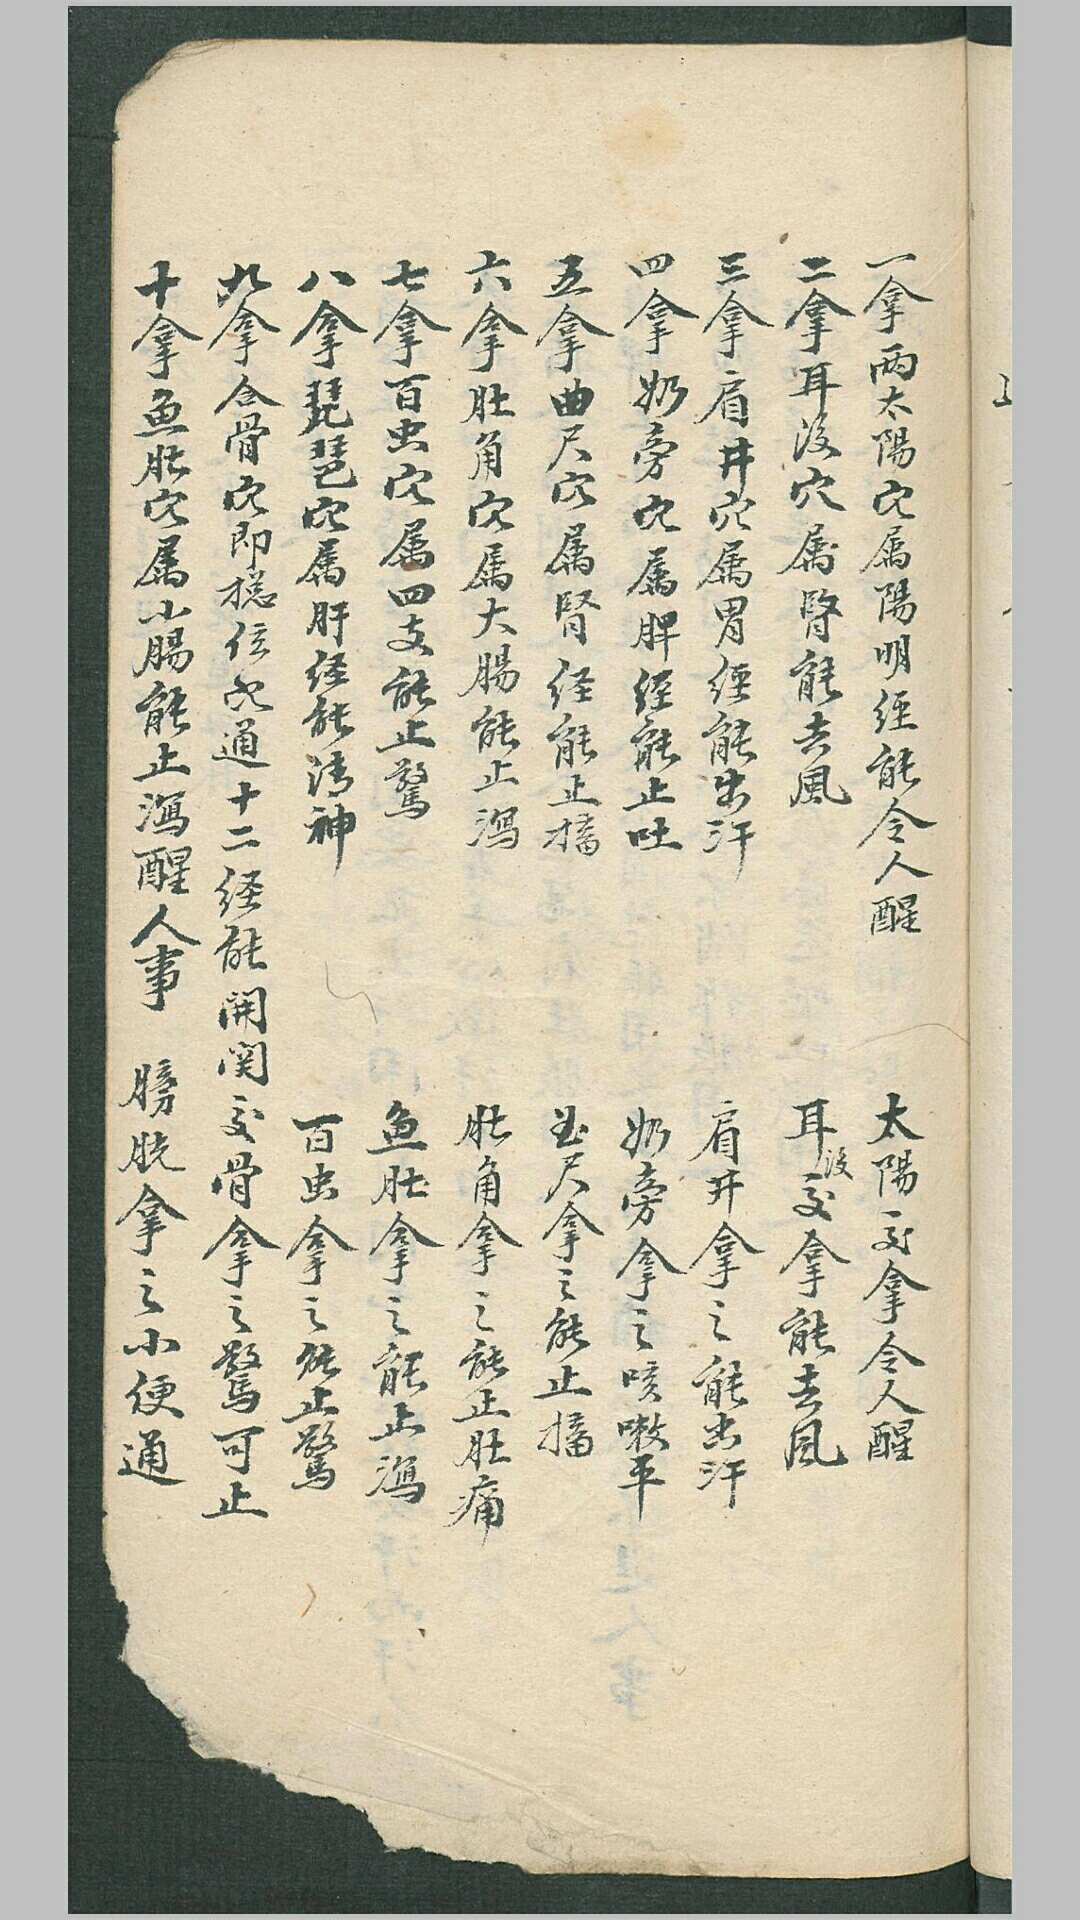 一拿兩太陽穴属陽明經能令人醒　太陽交拿令人醒
二拿耳后穴属腎能去風　耳后交拿能去風
三拿肩井穴属胃經能出汗　肩井拿之能出汗
四拿奶旁穴属脾經能止吐　奶旁拿之咳嗽平
五拿曲尺穴属腎経能止搐　曲尺拿之能止搐
六拿肚角穴属大腸能止瀉　肚角拿之能止肚痛
七拿百虫穴属四支能止驚　魚肚拿之能止瀉
八拿琵琶穴属肝経能清神　百虫拿之能止驚
九拿合骨穴即總位穴通十二経能開関　交骨拿之驚可止
十拿魚肚穴属小腸能止瀉醒人事　膀胱拿之小便通